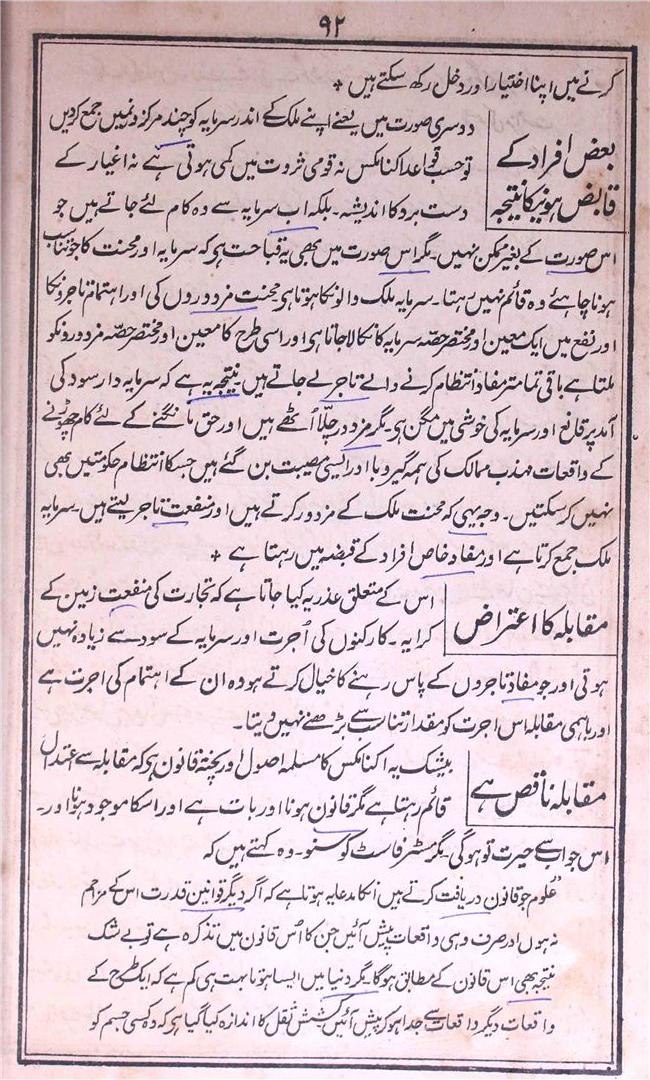 ۹۲
کرنے میں اپنا اختیار اور دخل رکھ سکتے ہیں +
بعض افراد کے
قابض ہونیکا نتیجہ
دوسری صورت میں یعنے اپنے ملک کے اندر سرمایہ کو چند مرکز و نمیں جمع کر دیں
تو حسب قواعد اکنامکس نہ قومی ثروت میں کمی ہوتی ہے نہ اغیار کے
دست برد کا اندیشہ۔ بلکہ اب سرمایہ سے وہ کام لئے جاتے ہیں جو
اس صورت کے بغیر ممکن نہیں۔ مگر اس صورت میں بھی یہ قباحت ہی کہ سرمایہ اور محنت کا جو تناسب
ہونا چاہئے وہ قائم نہیں رہتا۔ سرمایہ ملک والونکا ہوتا ہی محنت مزدوروں کی اور اہتمام تاجرونکا
اور نفع میں ایک معین اور مختصر حصّہ سرمایہ کا نکالا جاتا ہی اور اسی طرح کا معین اور مختصر حصّہ مزدورونکو
ملتا ہے باقی تمامتر مفاد انتظام کرنے والے تاجر لے جاتے ہیں نتیجہ یہ ہے کہ سرمایہ دار سود کی
آمد پر قانع اور سرمایہ کی خوشی میں مگن ہی۔ مگر مزدور چلّا اُٹھے ہیں اور حق مانگنے کے لئے کام چھوڑنے
کے واقعات مہذب ممالک کی ہمہ گیر وبا اور ایسی مصیبت بن گئے ہیں جسکا انتظام حکومتیں بھی
نہیں کر سکتیں۔ وجہ یہی کہ محنت ملک کے مزدور کرتے ہیں اور منفعت تاجر لیتے ہیں۔ سرمایہ
ملک جمع کرتا ہے اور مفاد خاص افراد کے قبضہ میں رہتا ہے +
مقابلہ کا اعتراض
اس کے متعلق عذر یہ کیا جاتا ہے کہ تجارت کی منفعت زمین کے
کرایہ۔ کارکنوں کی اُجرت اور سرمایہ کے سود سے زیادہ نہیں
ہوتی اور جو مفاد تاجروں کے پاس رہنے کا خیال کرتے ہو وہ ان کے اہتمام کی اجرت ہے
اور باہمی مقابلہ اس اجرت کو مقدار تناسب سے بڑھنے نہیں دیتا۔
مقابلہ ناقص ہے
بیشک یہ اکنامکس کا مسلمہ اصول اور پختہ قانون ہی کہ مقابلہ سے اعتدال
قائم رہتا ہے مگر قانون ہونا اور بات ہے اور اسکا موجود ہونا اور۔
اس جواب سے حیرت تو ہوگی۔ مگر مسٹر فاسٹ کو سنو۔ وہ کہتے ہیں کہ
"علوم جو قانون دریافت کرتے ہیں اُنکا مدعا یہ ہوتا ہے کہ اگر دیگر قوانین قدرت اس کے مزاحم
نہ ہوں اور صرف وہی واقعات پیش آئیں جن کا اُس قانون میں تذکرہ ہے تو بے شک
نتیجہ بھی اس قانون کے مطابق ہوگا۔ مگر دنیا میں ایسا ہونا بہت ہی کم ہے کہ ایک طرح کے
واقعات دیگر واقعات سے جدا ہو کر پیش آئیں کشش ثقل کا اندازہ کیا گیا ہی کہ وہ کسی جسم کو